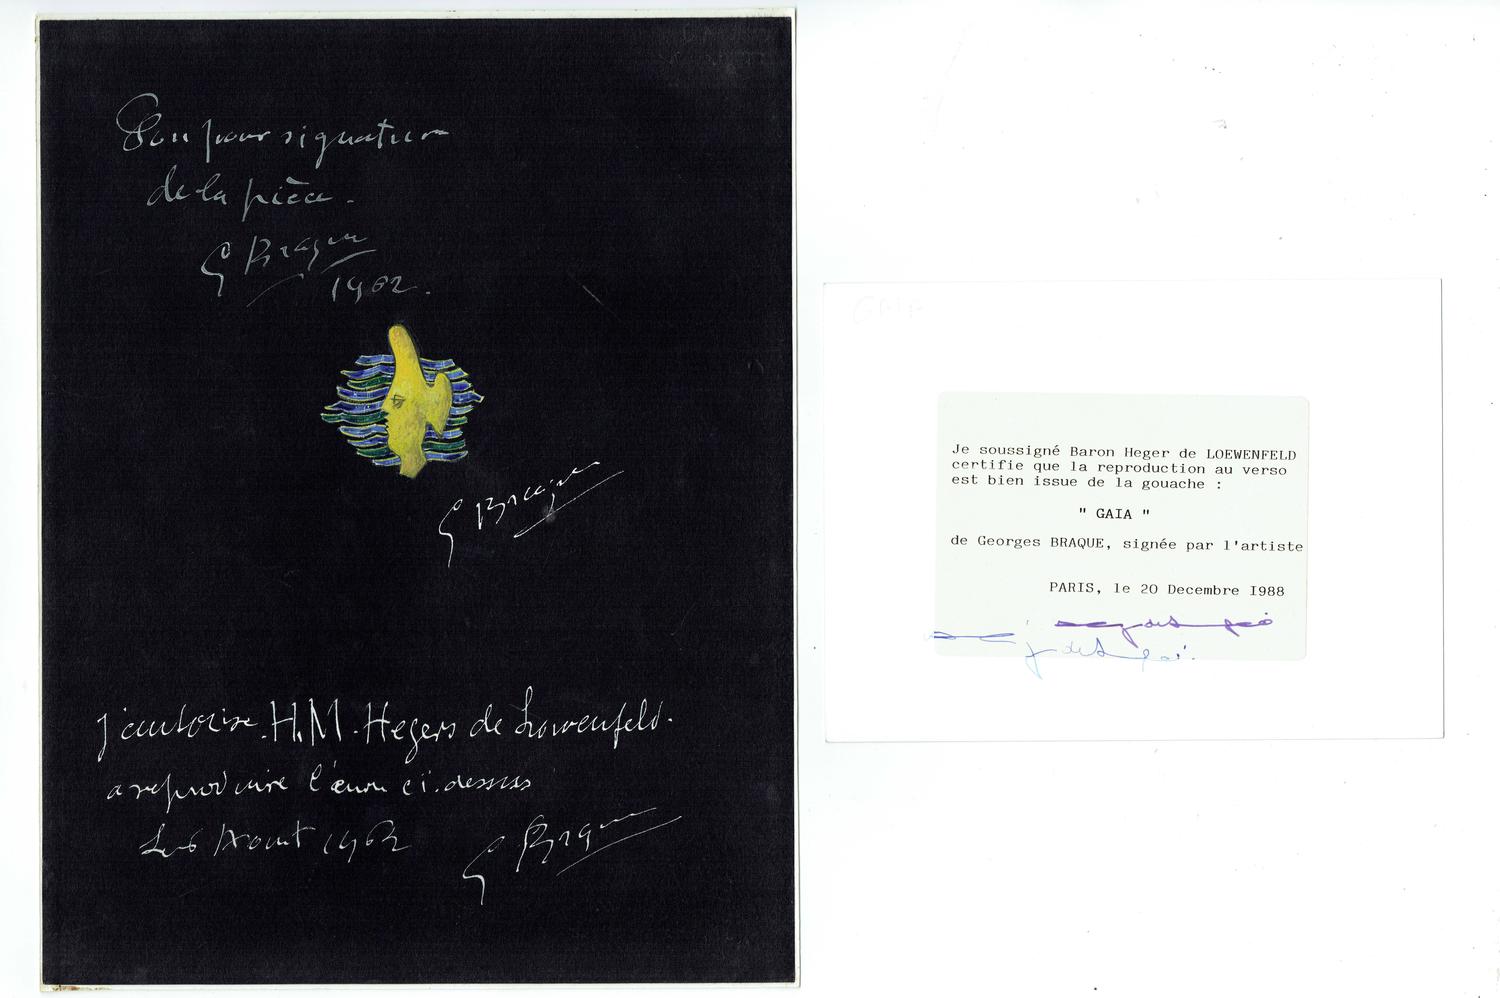 Bon pour signature
de la pièce.
G Braque
1962.
G Braque
j'autorise H.M. Hegers de Lowenfeld.
a reproduire l'œuvre ci.dessus
Le 6 Aout 1962
G Braque
GAIA
Je soussigné Baron Heger de LOEWENFELD
certifie que la reproduction au verso
est bien issue de la gouache :
" GAIA "
de Georges BRAQUE, signée par l'artiste
PARIS, le 20 Decembre I988